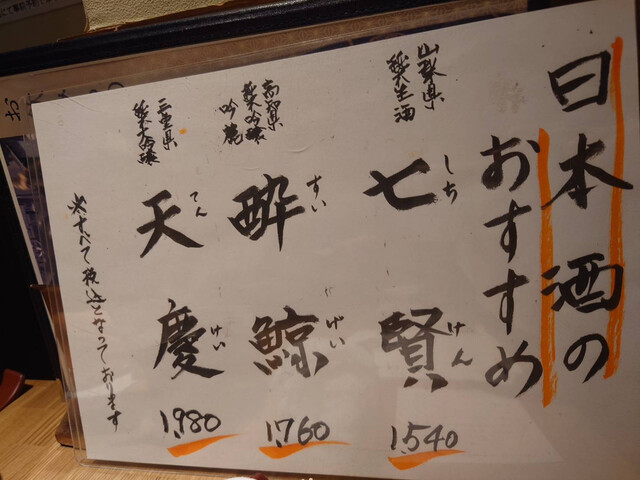 日本酒の
おすすめ
山梨県
純米生酒
七賢
しちけん
1,540
高知県
純米吟醸
吟麗
酔鯨
すいげい
1,760
三重県
純米大吟醸
天慶
てんけい
1,980
※すべて税込となっております